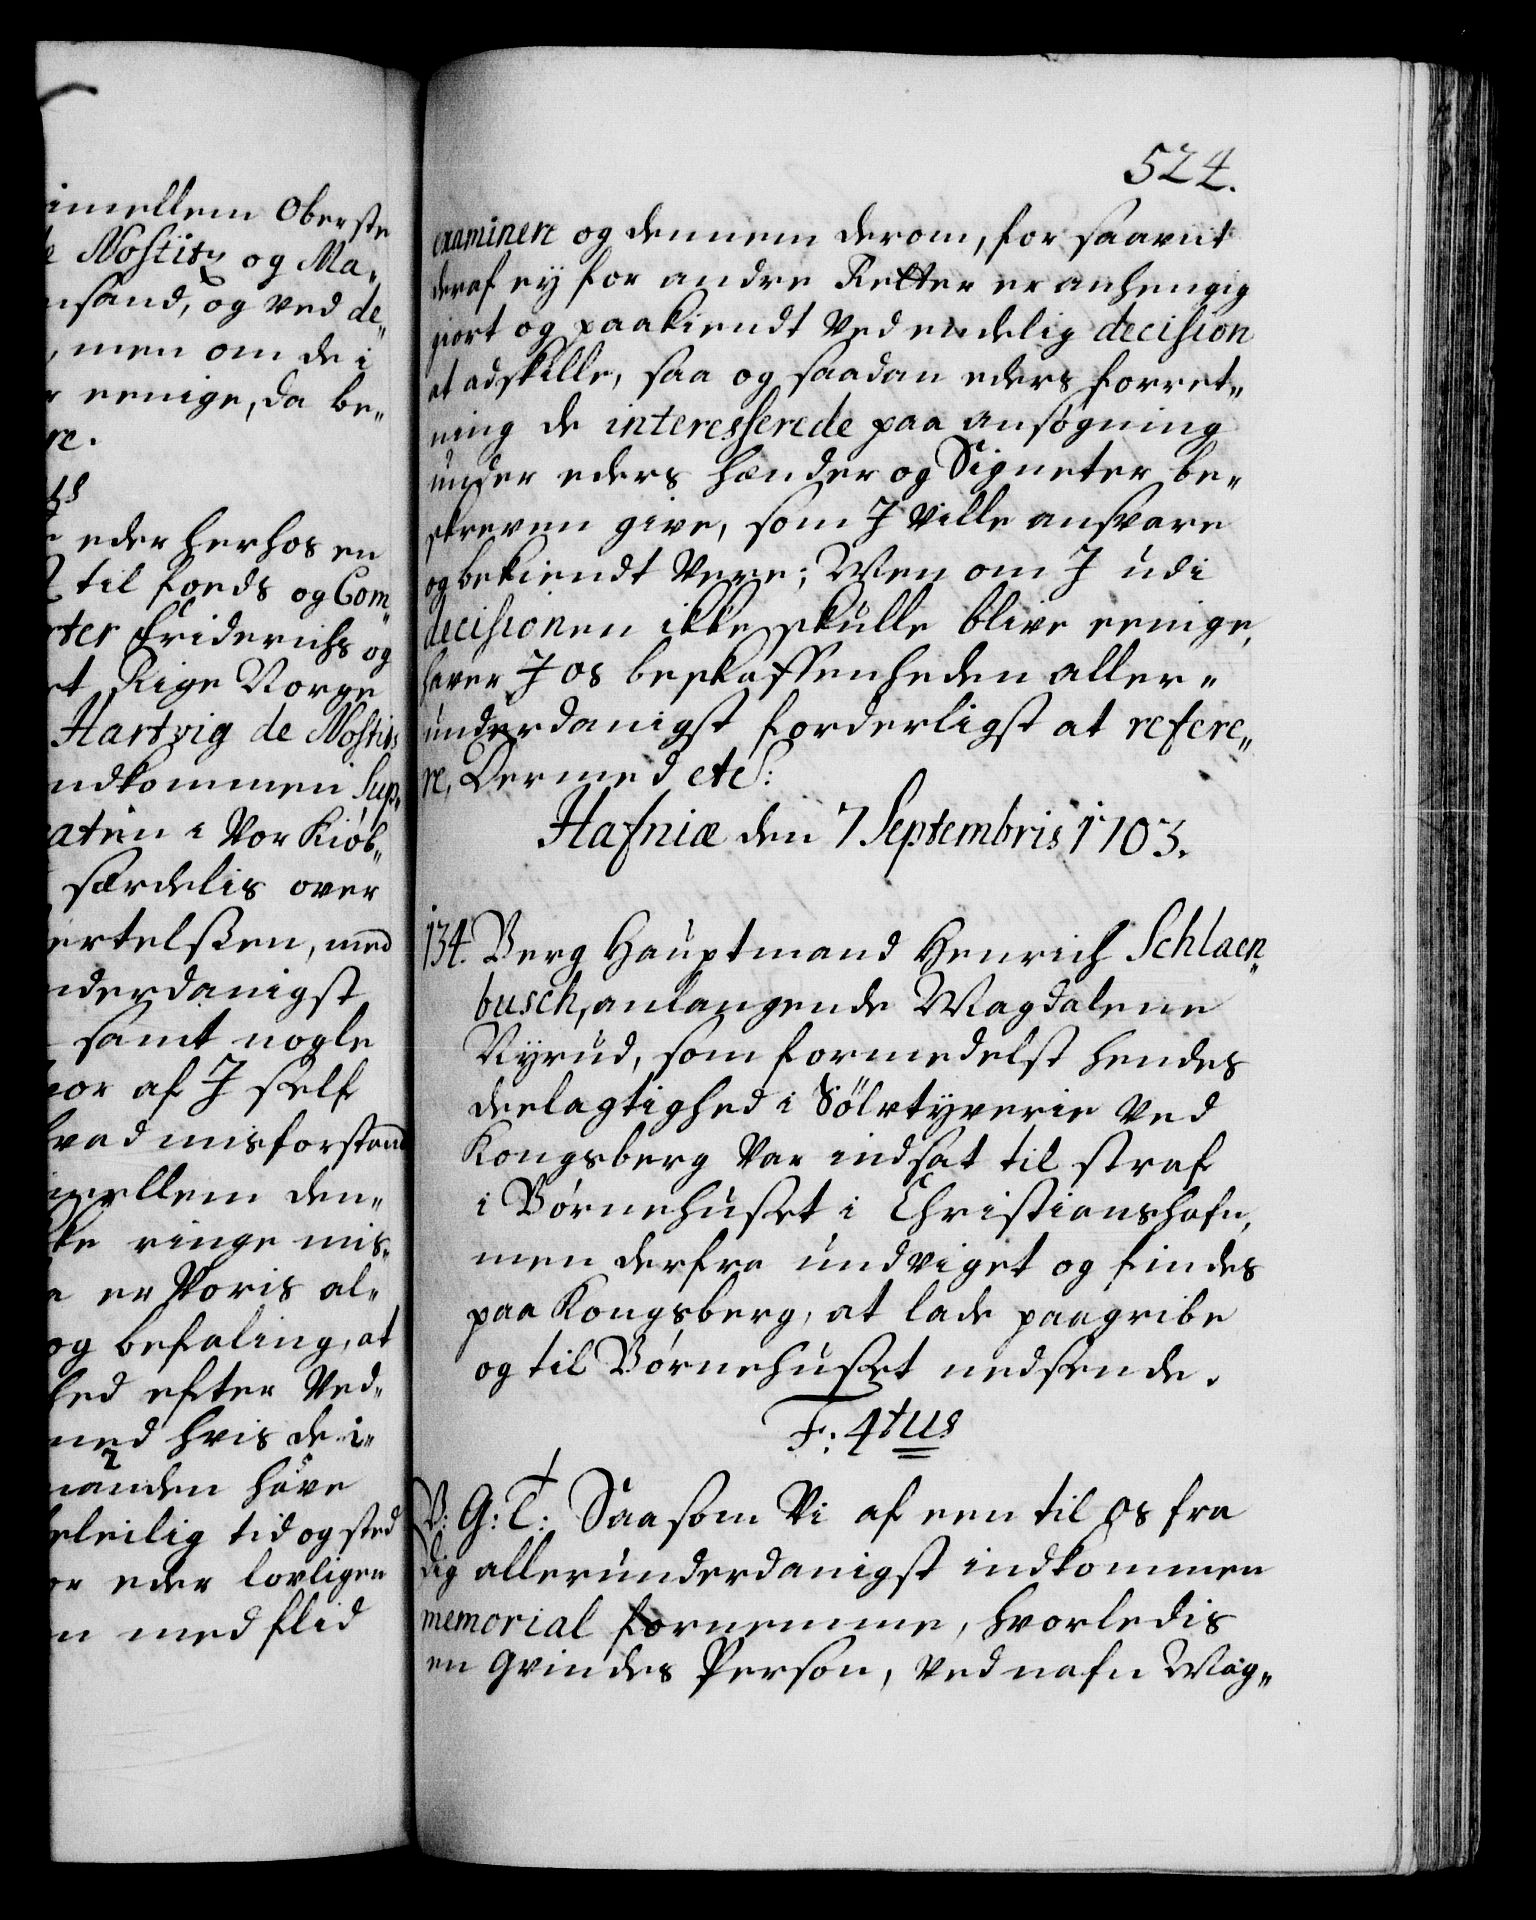 imellem Oberste
Nostitz og Ma,,
nsand, og ved de,,
, men om de i
eenige, da be,,
re.
eder herhos en
til fords og Com,,
ter Friderichs og
Rige Norge
Hartvig de Nostits
indkommen Sup,,
i Vor Kiøb,,
særdelis over
ertelßen, med
nderdanigst
samt nogle
af J self
hvad misforstand
imellem den,,
ringe mis,,
er Voris al,,
og befaling, at
efter Ved,,
med hvis de i,,
manden have
beleilig tid og sted
eder lovligen
med flid
524.
examinere og dennem derom, for saavit
deraf ey for andre Retter er anhengig
giort og paakiendt ved endelig decision
at adskille, saa og saadan eders forret,,
ning de interesserede paa ansøgning
under eders hænder og Signeter be,,
skreven give, som J ville ansvare
og bekiendt være; Men om J udi
decisionen ikke skulle blive eenige,
haver J os beskaffenheden aller,,
underdanigst forderligst at refere,,
re, Dermed etc:
Hafniæ den 7 Septembris 1703.
134. Berg Hauptmand Henrich Schlaen,,
busch, anlangende Magdalene
Nyrud, som formedelst hendes
deelagtighed i Sölvtyverie ved
Kongsberg var indsat til straf
i Børnehuset i Christianshafn,
men derfra undviget og findes
paa Kongsberg, at lade paagribe
og til Børnehuset nedsende.
F: 4tus
V: G: T: Saasom Vi af een til os fra
dig allerunderdanigst indkommen
memorial fornemme, hvorledis
en Qvindes Person, ved nafn Mag,,